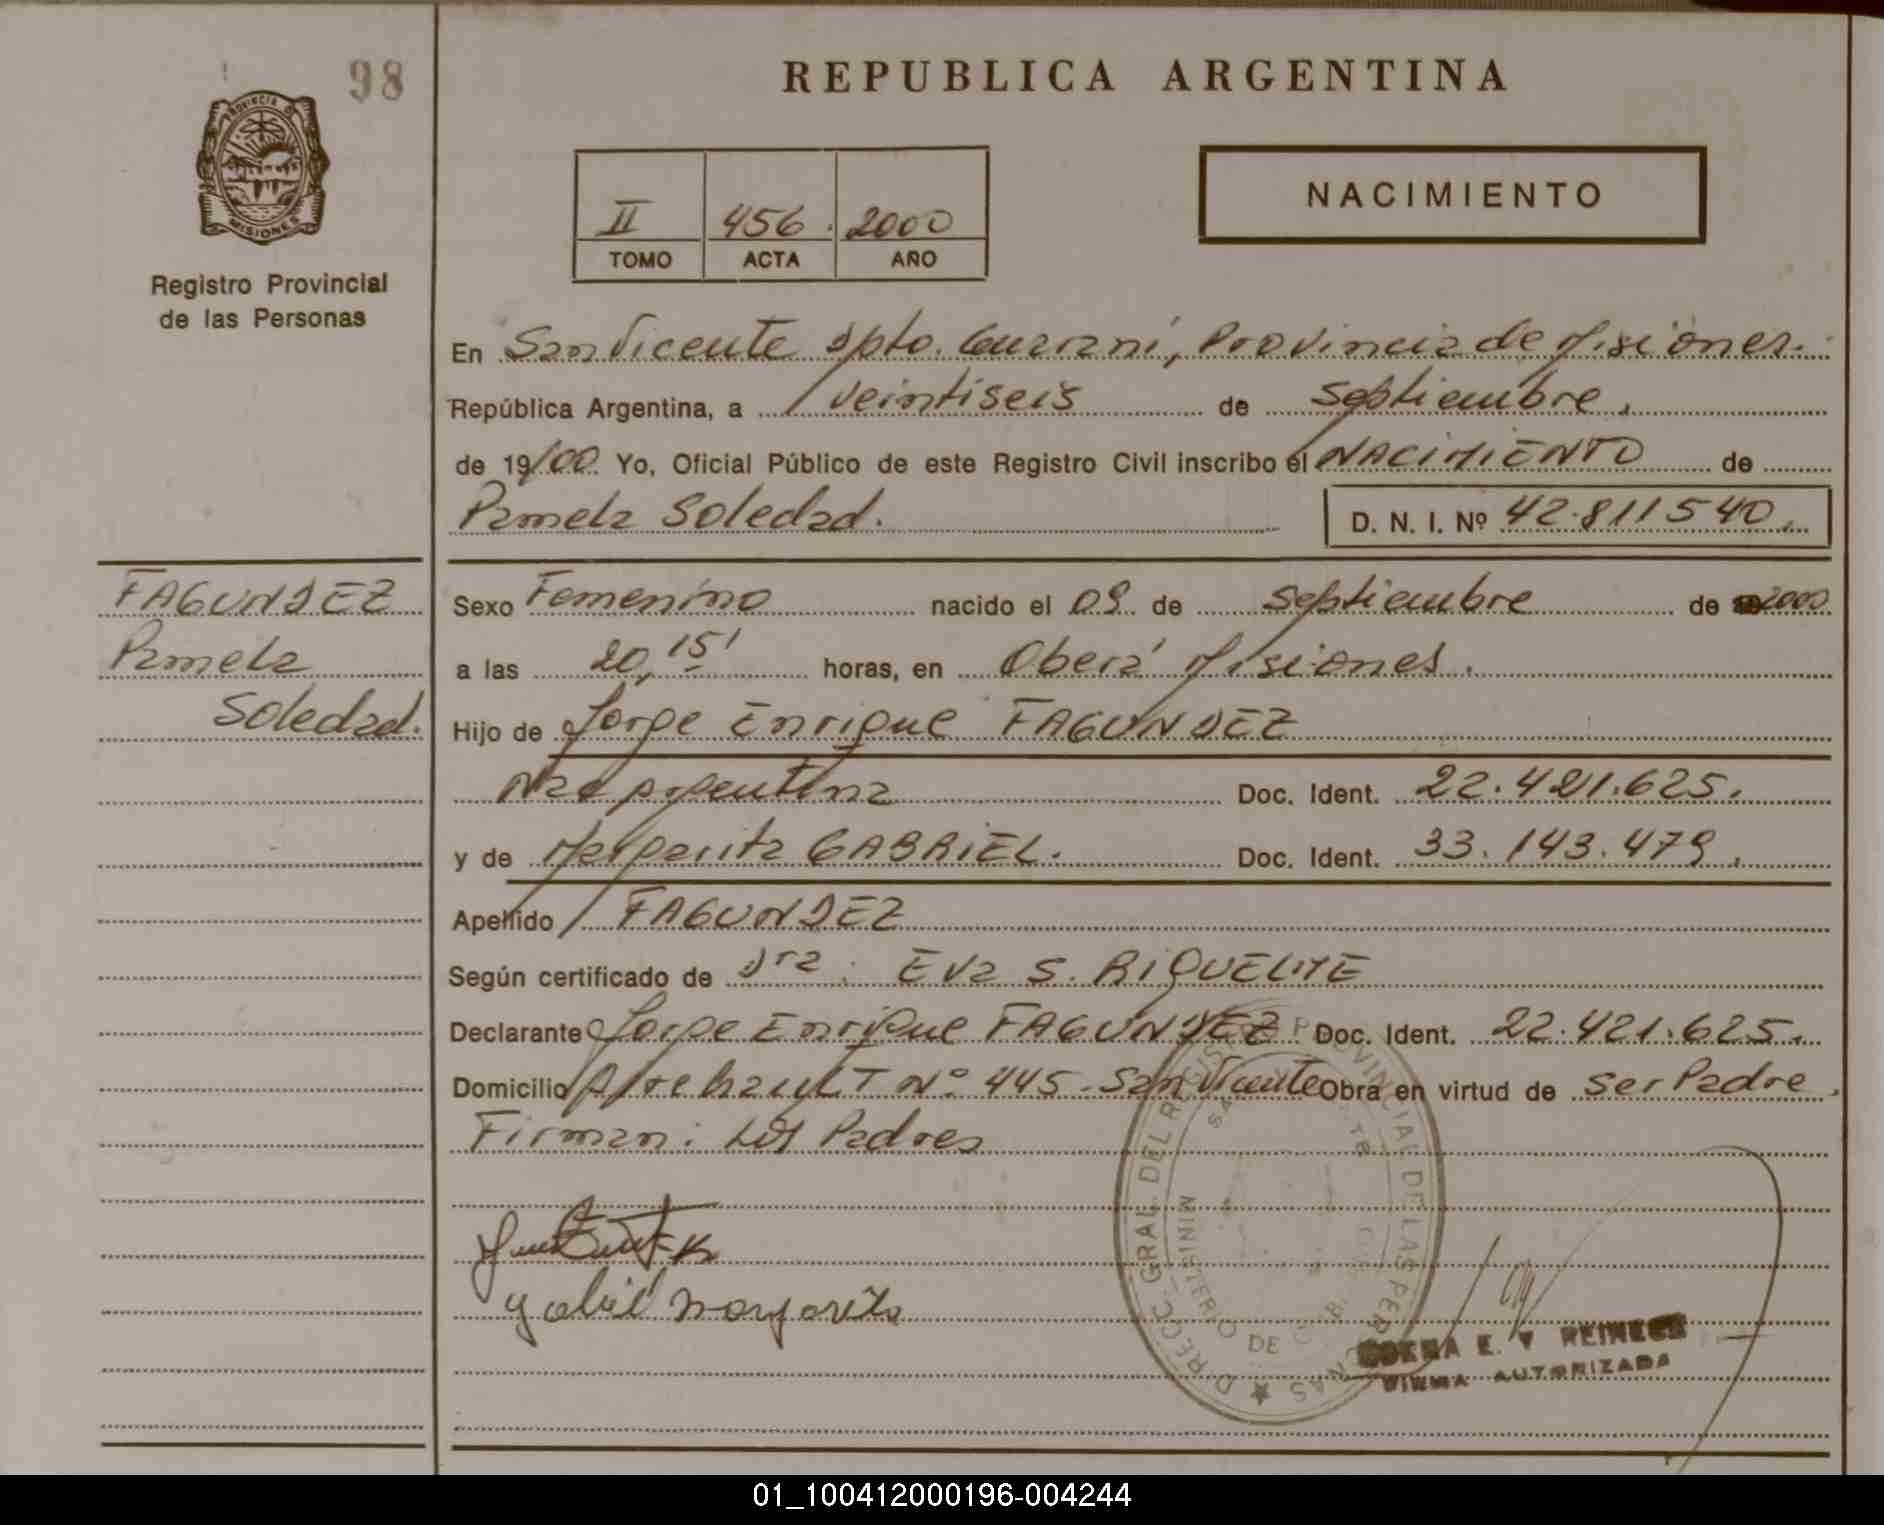 98
REPUBLICA ARGENTINA
PROVINCIA DE
MISIONES
Registro Provincial
de las Personas
II 456 . 2000
TOMO ACTA AÑO
NACIMIENTO
En San Vicente Dpto. Guaraní, Provincia de Misiones.
República Argentina, a veintiseis de septiembre,
de 19/00 Yo, Oficial Público de este Registro Civil inscribo el NACIMIENTO de
Pamela Soledad. D. N. I. Nº 42.811540.
FAGUNDEZ
Pamela
Soledad.
Sexo Femenino nacido el 09 de septiembre de 2000
a las 20,15' horas, en Oberá Misiones.
Hijo de Jorge Enrique FAGUNDEZ
Nac Argentina Doc. Ident. 22.421.625.
y de Margarita GABRIEL. Doc. Ident. 33.143.479.
Apellido FAGUNDEZ
Según certificado de Dra. Eva S. RIQUELME
Declarante Jorge Enrique FAGUNDEZ Doc. Ident. 22.421.625.
Domicilio Nº 445 - San Vicente Obra en virtud de ser Padre.
Firman: Los Padres
Gabriel Margarita
DIRECC. GRAL. DEL REGISTRO PROVINCIAL DE LAS PERSONAS
MINISTERIO DE GOB.
E. V REINECK
FIRMA AUTORIZADA
01_100412000196-004244